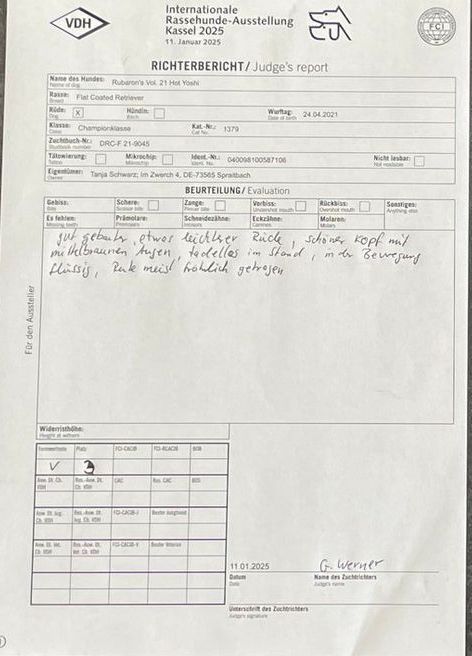 VDH
Internationale
Rassehunde-Ausstellung
Kassel 2025
11. Januar 2025
FCI
RICHTERBERICHT/ Judge's report
Name des Hundes: Rubaron's Vol. 21 Hot Yoshi
Name of dog
Rasse: Flat Coated Retriever
Breed
Rüde: X Hündin: Wurftag: 24.04.2021
Dog Bitch Date of birth
Klasse: Championklasse Kat.-Nr.: 1379
Class Cat No.
Zuchtbuch-Nr.: DRC-F 21-9045
Studbook number
Tätowierung: Mikrochip: Ident.-Nr.: 040098100587106 Nicht lesbar:
Tattoo Microchip Ident. No. Not readable
Eigentümer: Tanja Schwarz; Im Zwerch 4, DE-73565 Spraitbach
Owner
BEURTEILUNG/ Evaluation
Gebiss: Schere: Zange: Vorbiss: Rückbiss: Sonstiges:
Bite Scissor bite Pincer bite Undershot mouth Overshot mouth Anything else
Es fehlen: Prämolare: Schneidezähne: Eckzähne: Molaren:
Missing teeth Premolars Incisors Canines Molars
gut gebauter, etwas leichter Rüde, schöner Kopf mit
mittelbraunen Augen, tadellos im Stand, in der Bewegung
flüssig, Rute meist fröhlich getragen
Für den Aussteller
Widerristhöhe:
Height at withers
Formwertnote Platz FCI-CACIB FCI-RCACIB BOB
V 3
Anw. Dt. Ch. VDH Res.-Anw. Dt. Ch. VDH CAC Res. CAC BOS
Anw. Dt. Jug. Ch. VDH Res.-Anw. Dt. Jug. Ch. VDH FCI-CACIB-J Bester Junghund
Anw. Dt. Vet. Ch. VDH Res.-Anw. Dt. Vet. Ch. VDH FCI-CACIB-V Bester Veteran
11.01.2025 G. Werner
Datum Name des Zuchtrichters
Date Judge's name
Unterschrift des Zuchtrichters
Judge's signature